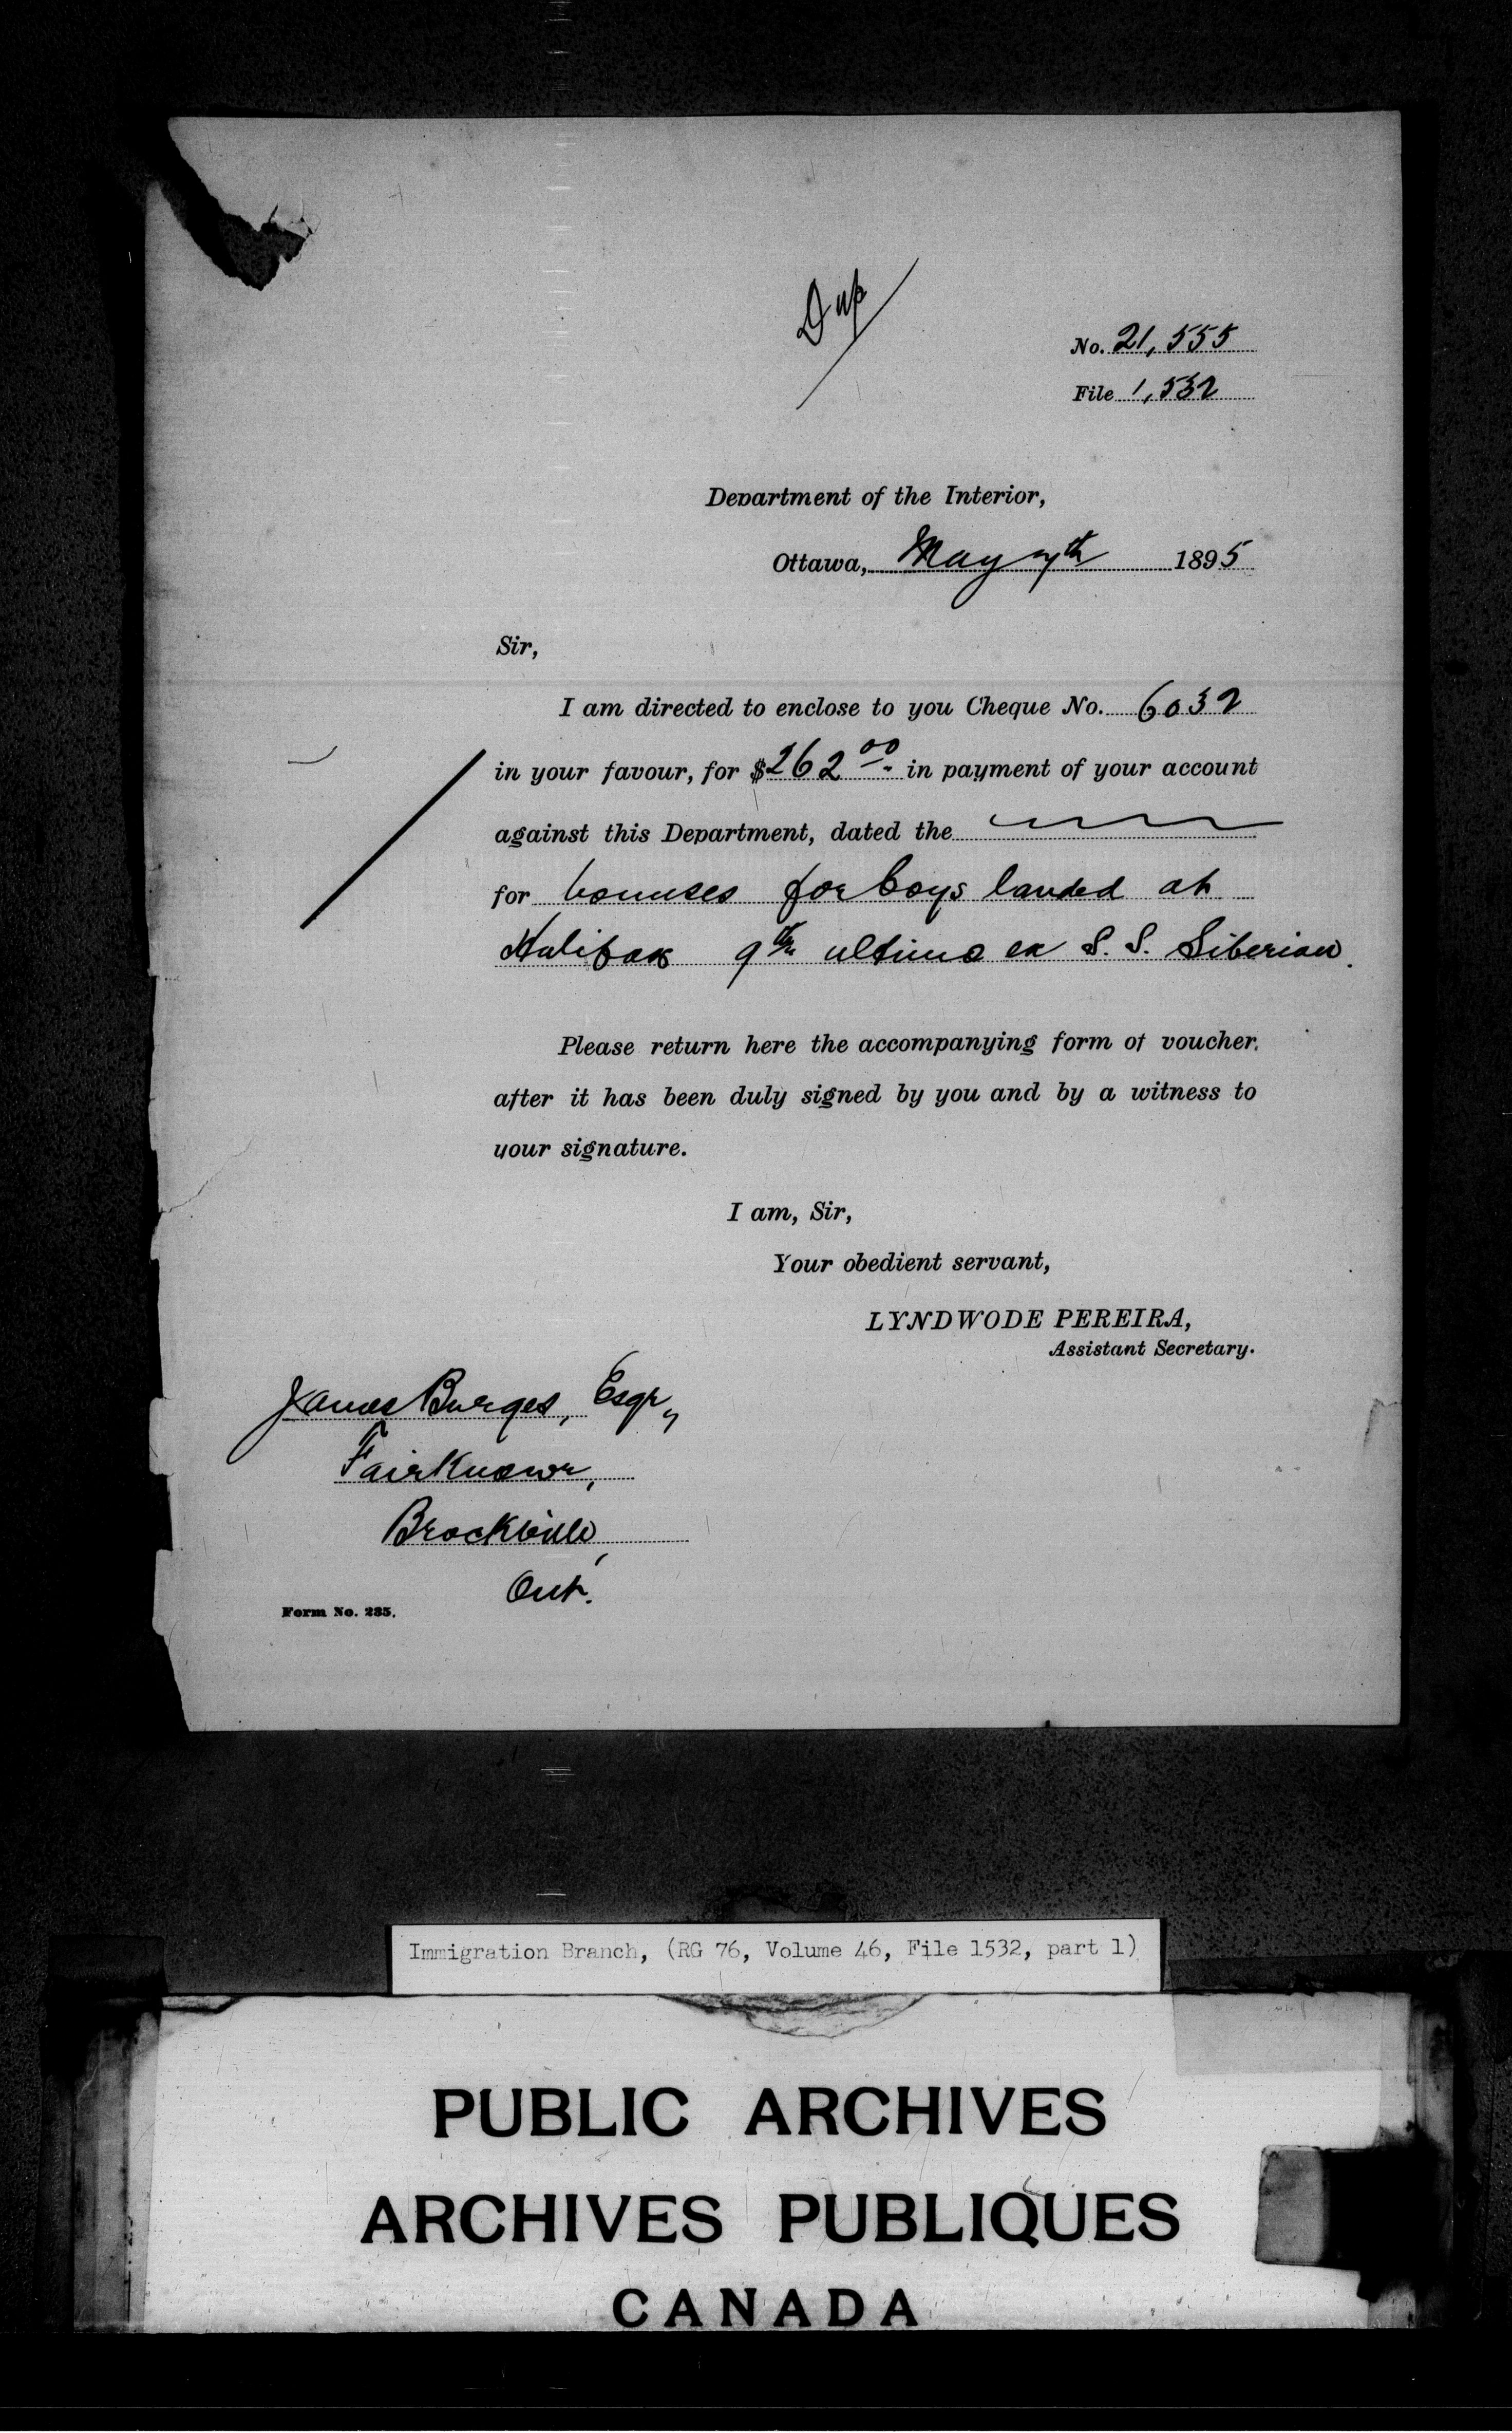 Dup
No. 21,555
File 1,532
Department of the Interior,
Ottawa, May 7th 1895
Sir,
I am directed to enclose to you Cheque No. 6032
in your favour, for $262 00 in payment of your account
against this Department, dated the
for bonuses for boys landed at
Halifax 9th ultimo ex S. S. Siberian.
Please return here the accompanying form of voucher,
after it has been duly signed by you and by a witness to
your signature.
I am, Sir,
Your obedient servant,
LYNDWODE PEREIRA,
Assistant Secretary.
James Burges, Esqr,
FairKnowe,
Brockville,
Ont.
Form No. 235.
Immigration Branch, (RG 76, Volume 46, File 1532, part 1)
PUBLIC ARCHIVES
ARCHIVES PUBLIQUES
CANADA